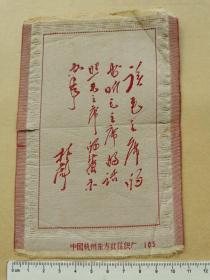 读毛主席的
书听毛主席的话
照毛主席的指示
办事
林彪
中国杭州东方红丝织厂 103